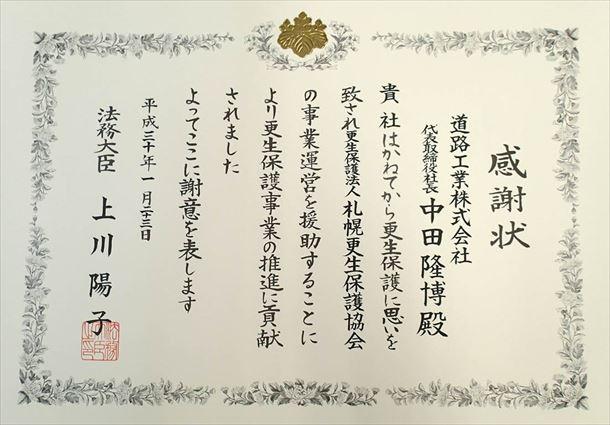 感謝状
道路工業株式会社
代表取締役社長 中田隆博殿
貴社はかねてから更生保護に思いを
致され更生保護法人札幌更生保護協会
の事業運営を援助することに
より更生保護事業の推進に貢献
されました
よってここに謝意を表します
平成三十年一月二十三日
法務大臣 上川陽子